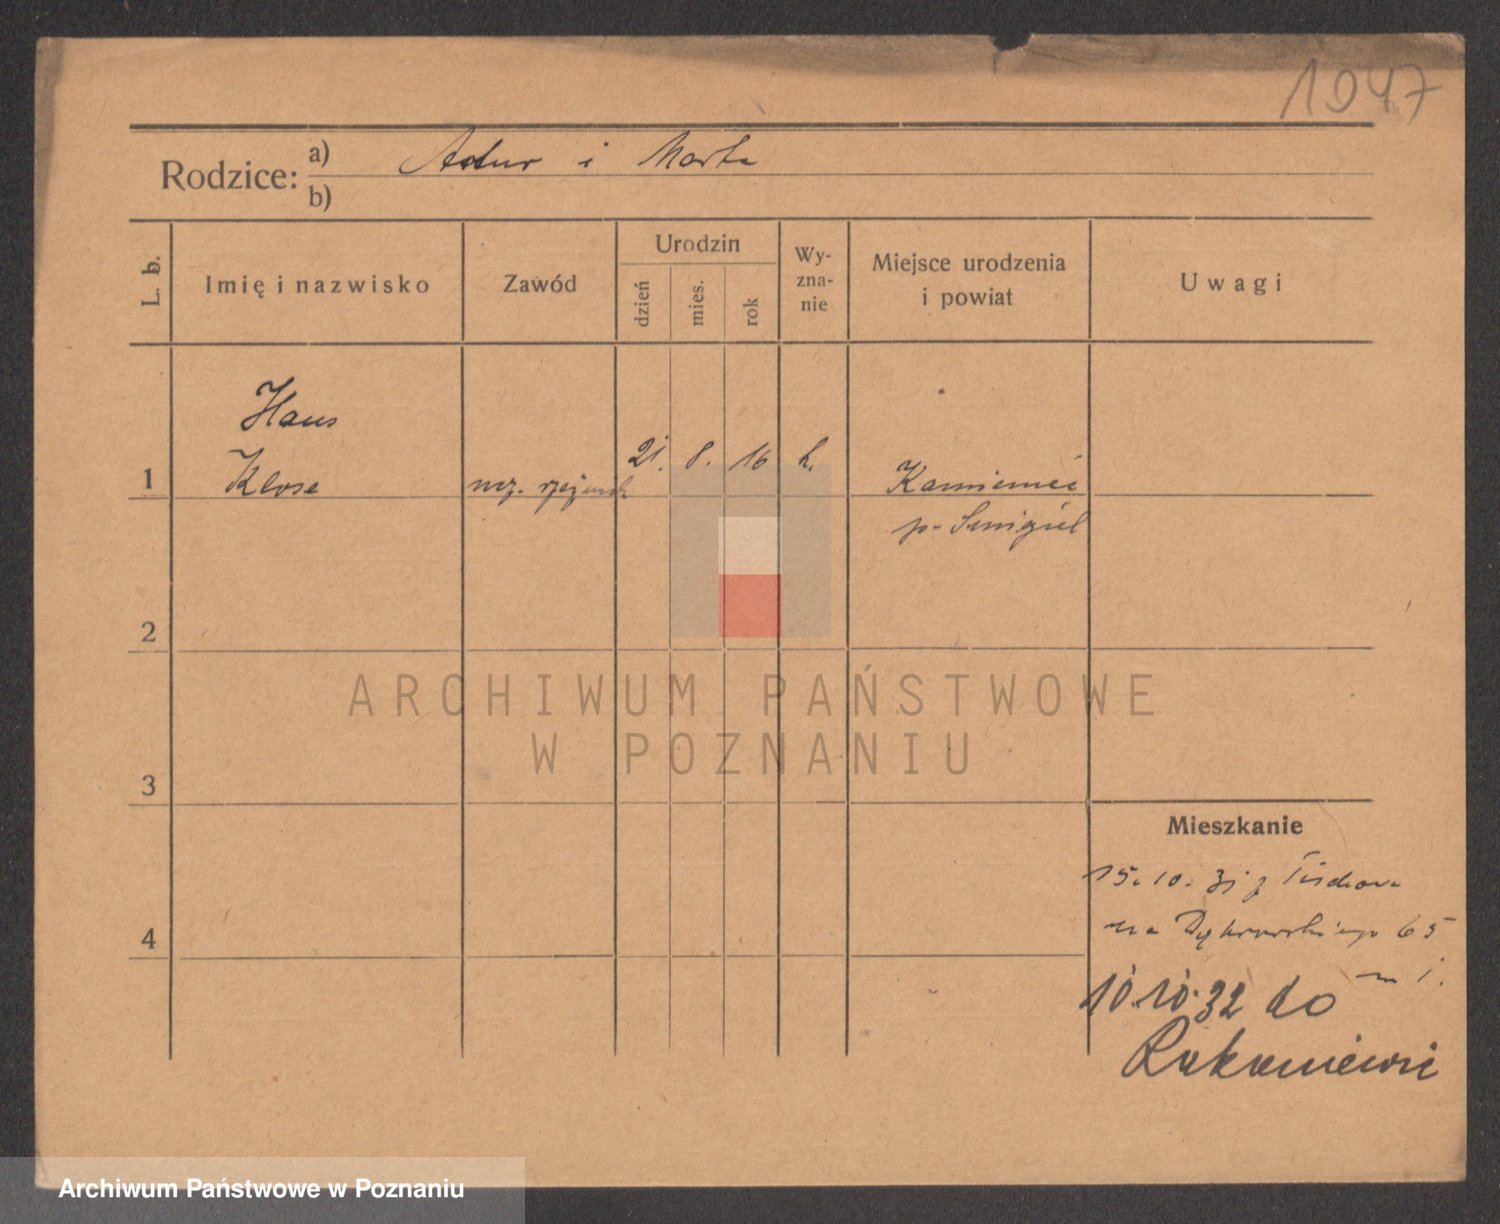 1047
Rodzice: a) Artur i Marta
b)
L. b.
Imię i nazwisko
Zawód
Urodzin
dzień
mies.
rok
Wy-
zna-
nie
Miejsce urodzenia
i powiat
Uwagi
Hans
1 Klose
ucz. rzeźnick
21. 8. 16
Kamieniec
p. Śmigiel
2
3
4
ARCHIWUM PAŃSTWOWE
W POZNANIU
Mieszkanie
15. 10. 31 z
na Dąbrowskiego 65
m 1.
10.10.32 do
Rakoniewic
Archiwum Państwowe w Poznaniu